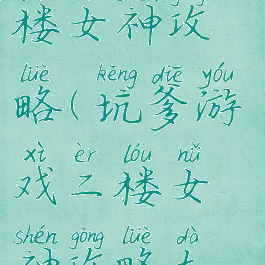 楼女神攻
lüè kēng diē yóu
略(坑爹游
xì èr lóu nǚ
戏二楼女
shén gōng lüè dà
神攻略大